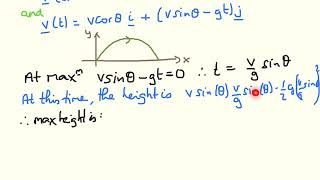 and
v(t) = vcosθ i + (vsinθ-gt)j
y
x
At maxᵐ vsinθ-gt=0 ∴ t = v/g sinθ
At this time, the height is v sin(θ) v/g sin(θ) - ½g(v/g sinθ)²
∴ max height is: